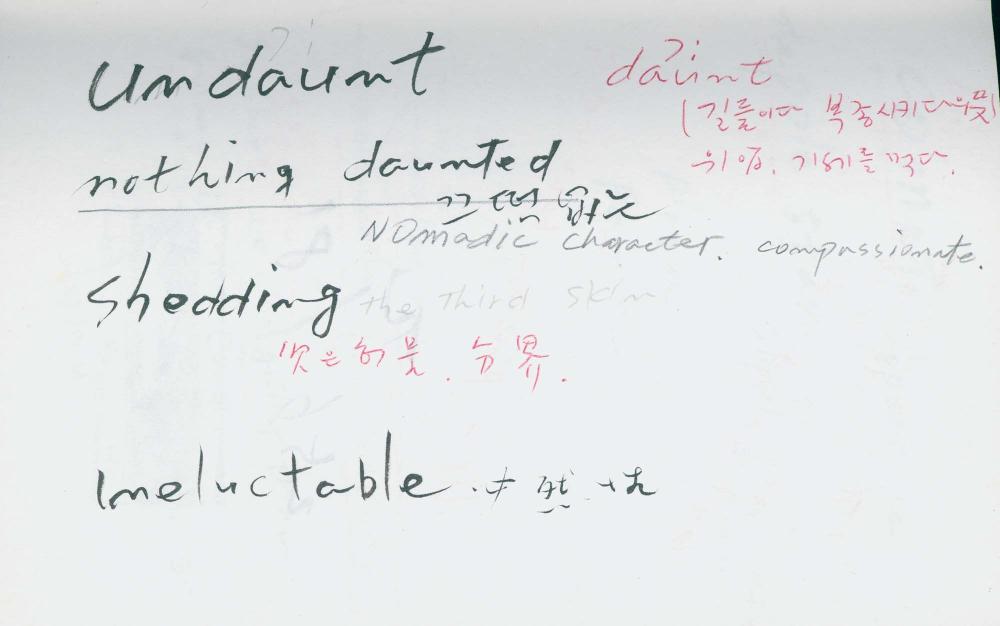 undaunt
daunt
(길들이다 복종시키다의 뜻)
위압, 기세를 꺾다.
nothing daunted
끄떡 없는
NOmadic character. compassionate.
Shedding the Third Skin
벗은 허물. 分界.
Ineluctable